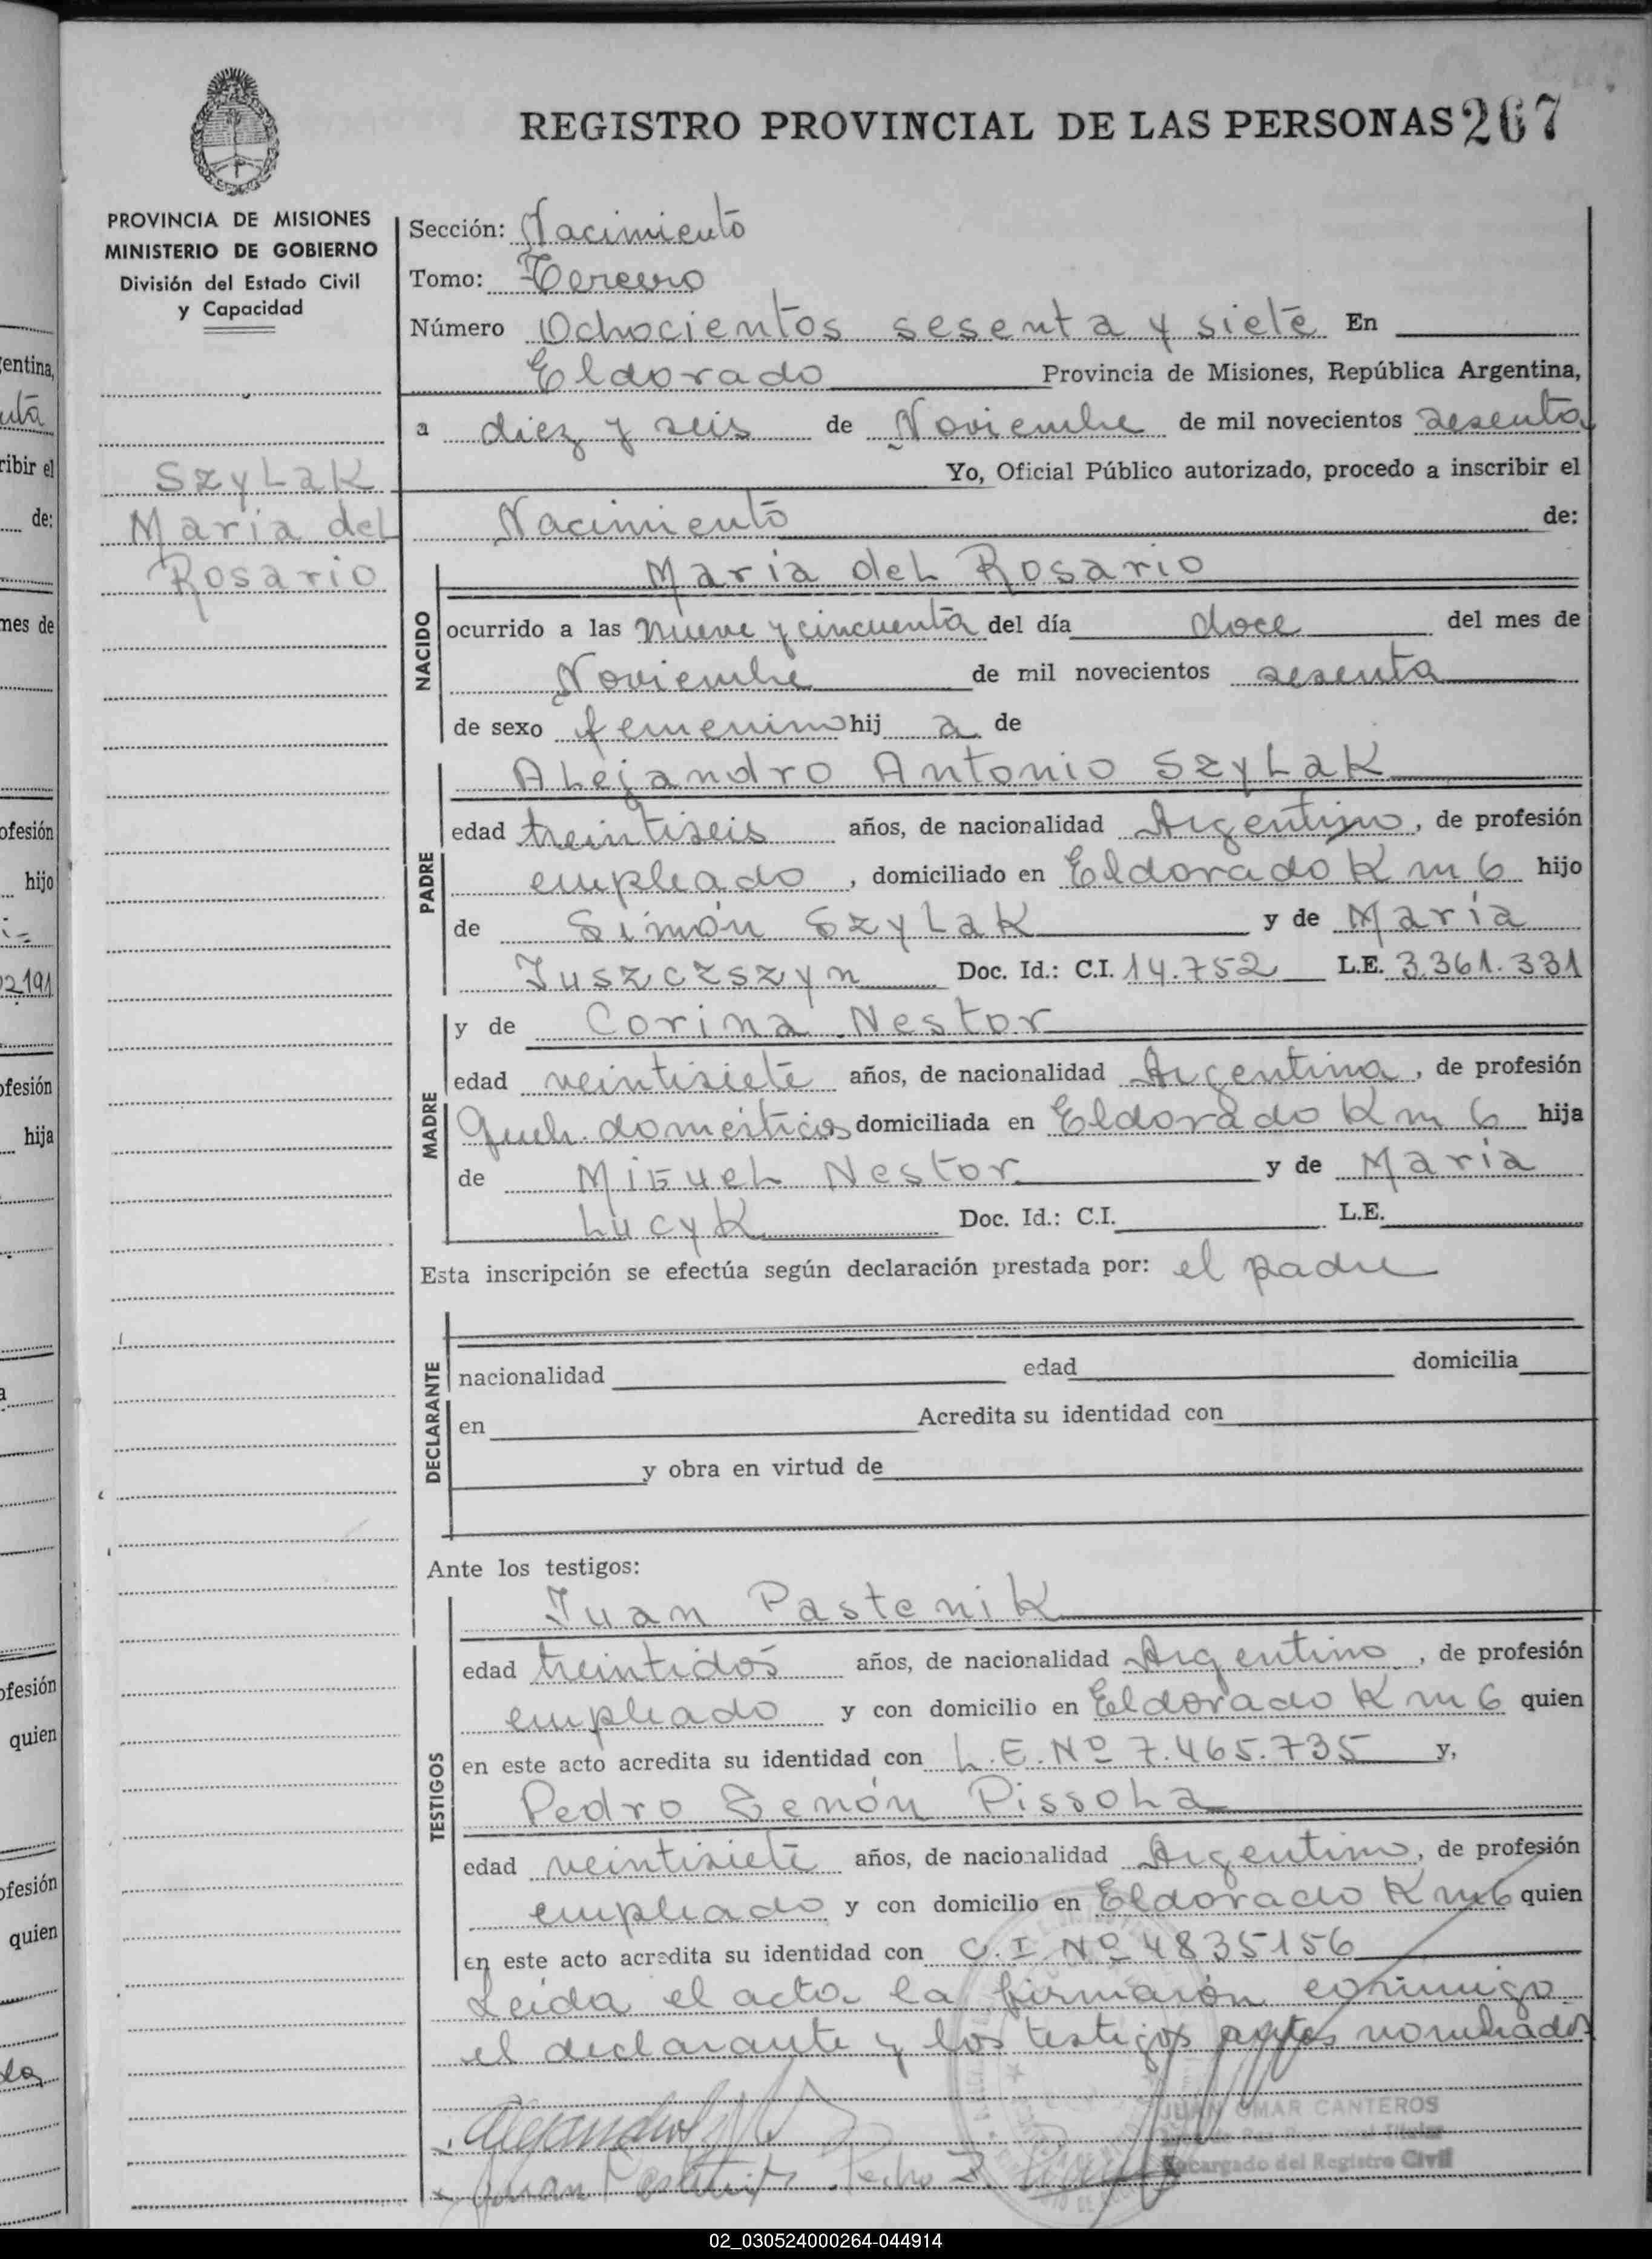 REGISTRO PROVINCIAL DE LAS PERSONAS 267
PROVINCIA DE MISIONES
MINISTERIO DE GOBIERNO
División del Estado Civil
y Capacidad
SzyLak
Maria del
Rosario
Sección: Nacimiento
Tomo: Tercero
Número Ochocientos sesenta y siete En
Eldorado Provincia de Misiones, República Argentina,
a diez y seis de Noviembre de mil novecientos sesenta
Yo, Oficial Público autorizado, procedo a inscribir el
Nacimiento de:
NACIDO
Maria del Rosario
ocurrido a las nueve y cincuenta del día doce del mes de
Noviembre de mil novecientos sesenta
de sexo femenino hij a de
PADRE
Alejandro Antonio SzyLak
edad treintiseis años, de nacionalidad Argentino, de profesión
empleado, domiciliado en Eldorado Km 6 hijo
de Simón SzyLak y de María
Juszczszyn Doc. Id.: C.I. 14.752 L.E. 3.361.331
MADRE
y de Corina Nestor
edad veintisiete años, de nacionalidad Argentina, de profesión
Queh. domésticos domiciliada en Eldorado Km 6 hija
de Miguel Nestor y de María
Lucyk Doc. Id.: C.I. L.E.
Esta inscripción se efectúa según declaración prestada por: el padre
DECLARANTE
nacionalidad edad domicilia
en Acredita su identidad con
y obra en virtud de
Ante los testigos:
TESTIGOS
Juan Pastenik
edad treintidos años, de nacionalidad Argentino, de profesión
empleado y con domicilio en Eldorado Km 6 quien
en este acto acredita su identidad con L.E. Nº 7.465.735 y,
Pedro Zenón Pissola
edad veintisiete años, de nacionalidad Argentino, de profesión
empleado y con domicilio en Eldorado Km 6 quien
en este acto acredita su identidad con C.I. Nº 4835156
Leida el acta la firmarón conmigo
el declarante y los testigos antes nombrados
JUAN OMAR CANTEROS
Encargado del Registro Civil
02_030524000264-044914